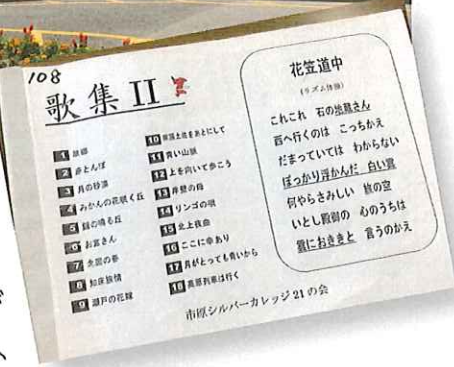 108
歌集 II
1 故郷
2 赤とんぼ
3 月の砂漠
4 みかんの花咲く丘
5 鐘の鳴る丘
6 お富さん
7 北国の春
8 知床旅情
9 瀬戸の花嫁
10 南国土佐をあとにして
11 青い山脈
12 上を向いて歩こう
13 岸壁の母
14 リンゴの唄
15 北上夜曲
16 ここに幸あり
17 月がとっても青いから
18 高原列車は行く
花笠道中
(リズム体操)
これこれ 石の地蔵さん
西へ行くのは こっちかえ
だまっていては わからない
ぽっかり浮かんだ 白い雲
何やらさみしい 旅の空
いとし殿御の 心のうちは
雲におききと 言うのかえ
市原シルバーカレッジ21の会